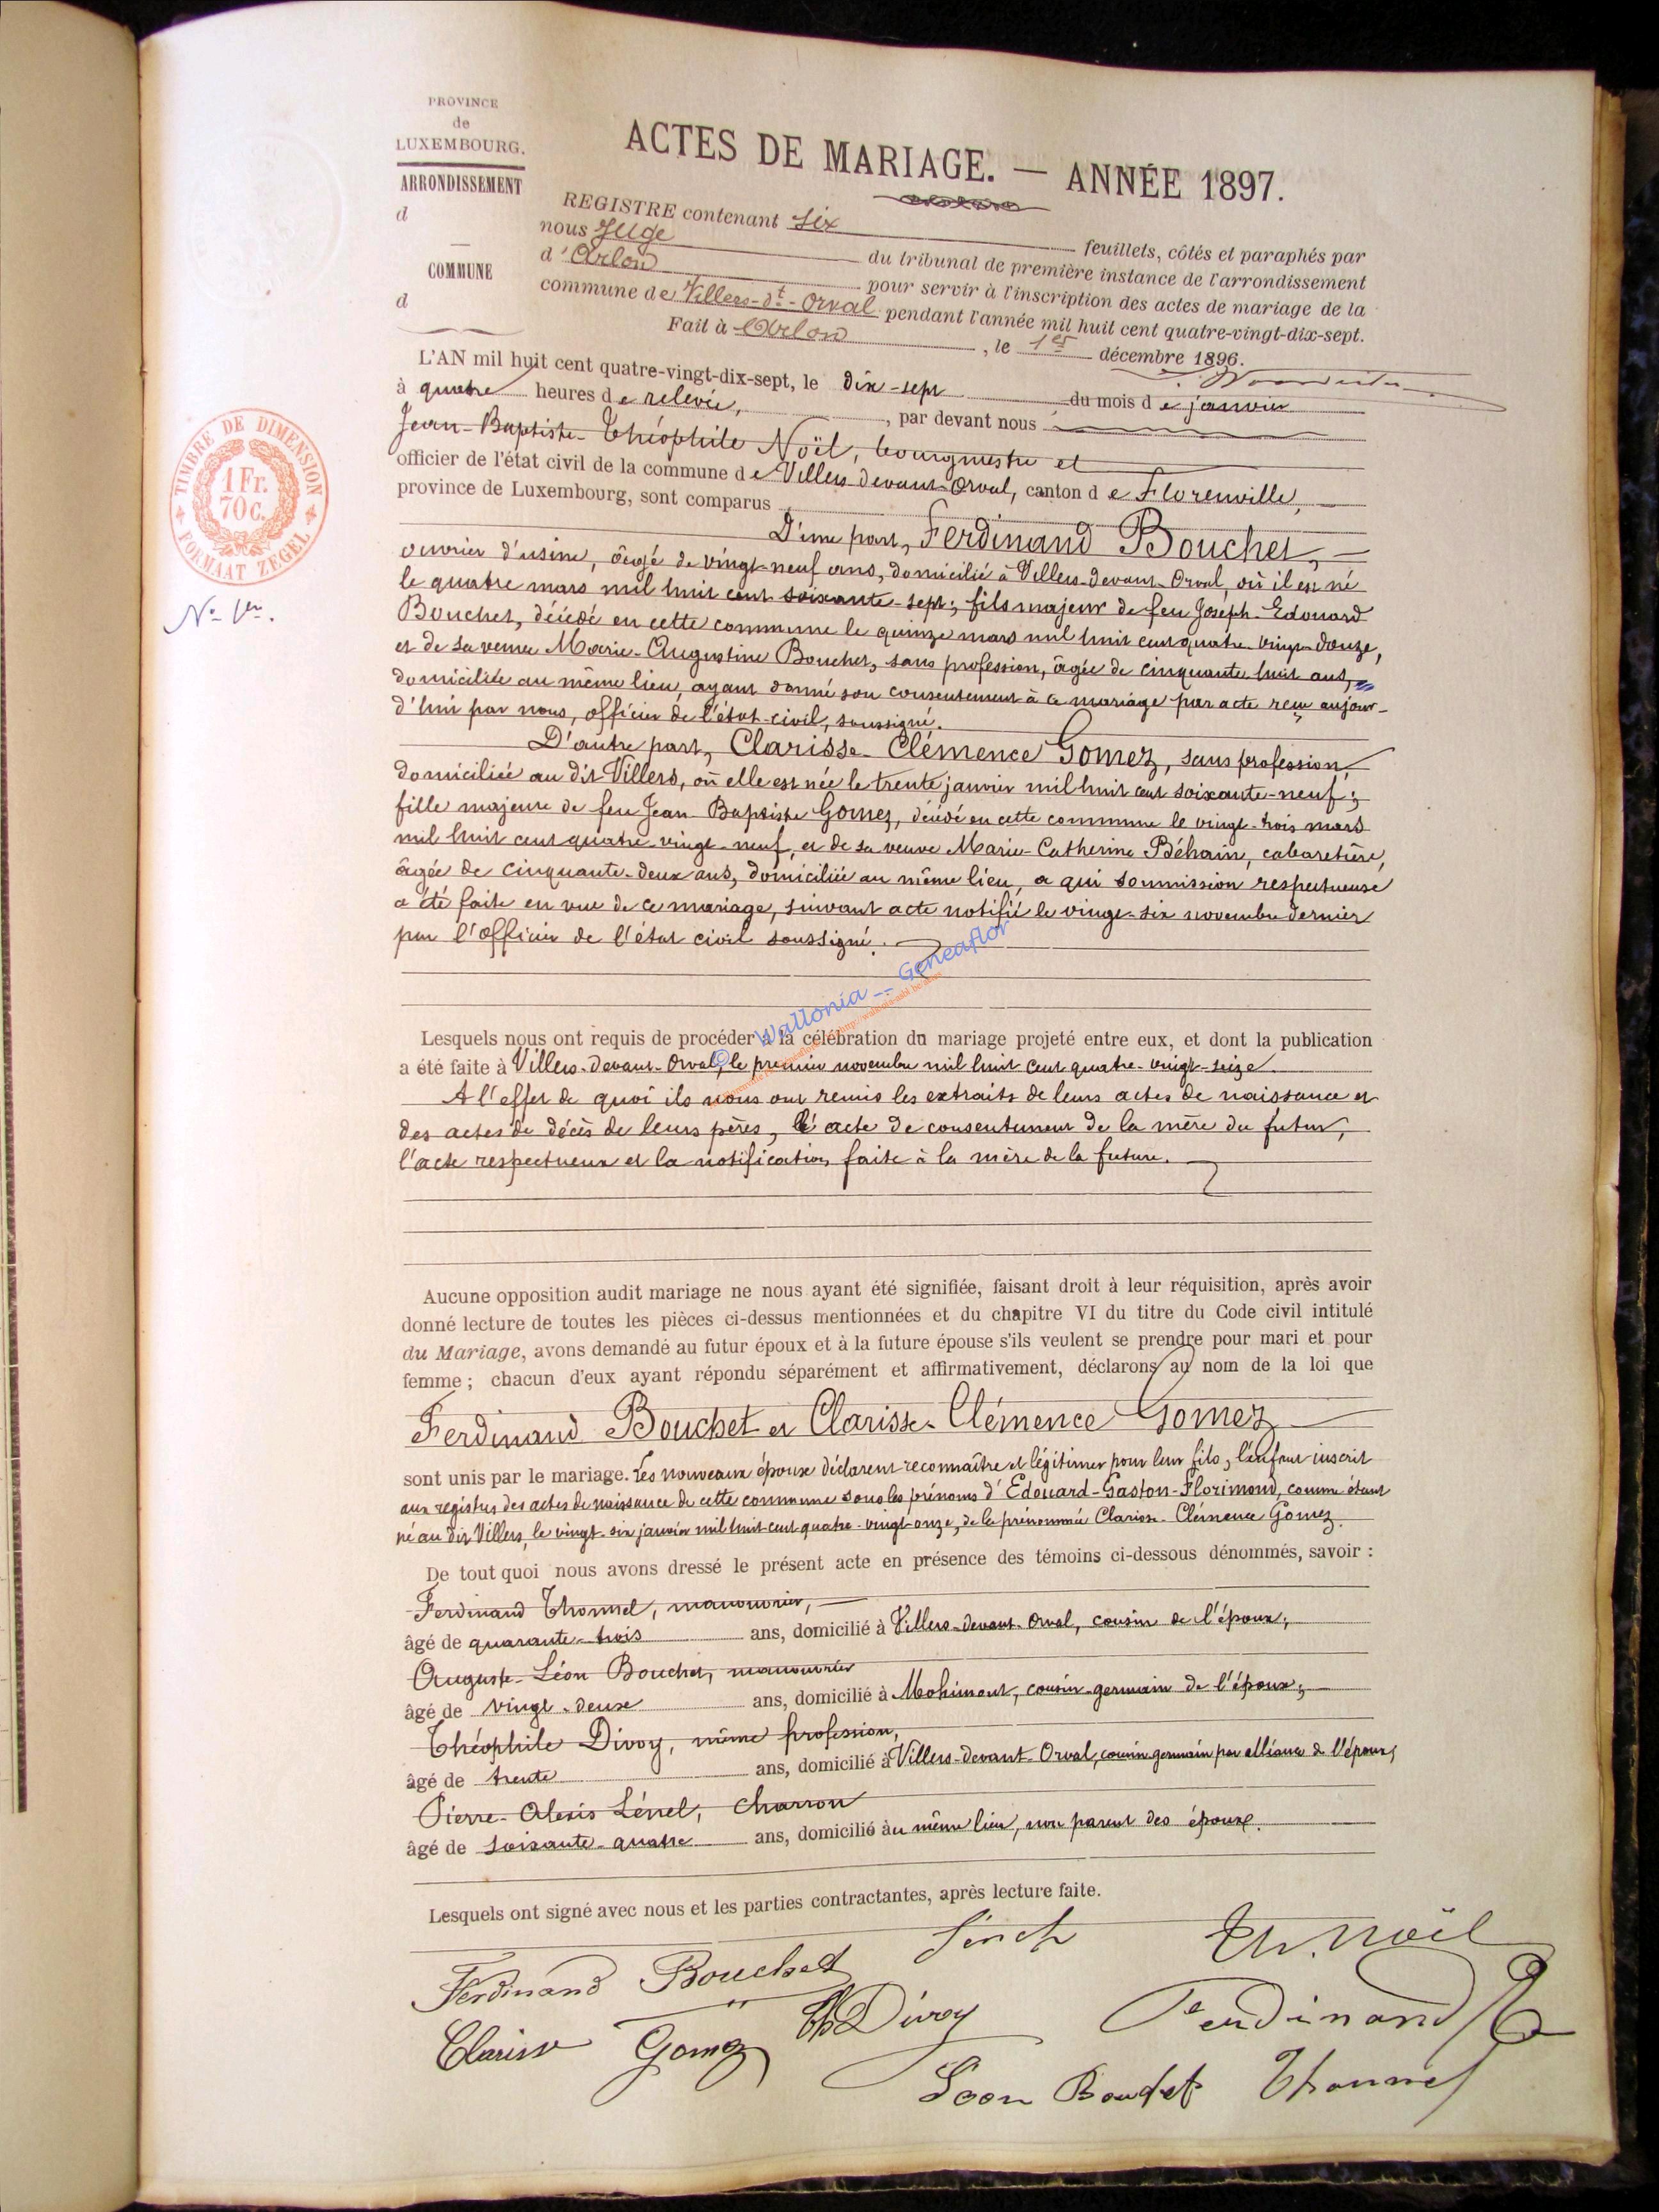 PROVINCE
de
LUXEMBOURG.
ARRONDISSEMENT
d
COMMUNE
d
ACTES DE MARIAGE. — ANNÉE 1897.
REGISTRE contenant six feuillets, côtés et paraphés par
nous Juge du tribunal de première instance de l'arrondissement
d'Arlon pour servir à l'inscription des actes de mariage de la
commune de Villers-dt-Orval pendant l'année mil huit cent quatre-vingt-dix-sept.
Fait à Arlon, le 1er décembre 1896.
L'AN mil huit cent quatre-vingt-dix-sept, le dix-sept du mois de janvier
à quatre heures de relevée, par devant nous
Jean-Baptiste-Théophile Noël, bourgmestre et
officier de l'état civil de la commune de Villers-devant-Orval, canton de Florenville,
province de Luxembourg, sont comparus
D'une part, Ferdinand Bouchet, —
ouvrier d'usine, âgé de vingt-neuf ans, domicilié à Villers-devant-Orval, où il est né
le quatre mars mil huit cent soixante-sept; fils majeur de feu Joseph-Edouard
Bouchet, décédé en cette commune le quinze mars mil huit cent quatre-vingt-douze,
et de sa veuve Marie-Augustine Bouchet, sans profession, âgée de cinquante huit ans,
domiciliée au même lieu, ayant donné son consentement à ce mariage par acte reçu aujour-
d'hui par nous, officier de l'état-civil, soussigné.
D'autre part, Clarisse-Clémence Gomez, sans profession,
domiciliée au dit Villers, où elle est née le trente janvier mil huit cent soixante-neuf;
fille majeure de feu Jean-Baptiste Gomez, décédé en cette commune le vingt-trois mars
mil huit cent quatre-vingt-neuf, et de sa veuve Marie-Catherine Béhain, cabaretière,
âgée de cinquante-deux ans, domiciliée au même lieu, a qui soumission respectueuse
a été faite en vue de ce mariage, suivant acte notifié le vingt-six novembre dernier
par l'officier de l'état civil soussigné.
TIMBRE DE DIMENSION
1 Fr.
70 c.
FORMAAT ZEGEL
No 1er.
© Wallonia -- Geneaflor
Lesquels nous ont requis de procéder à la célébration du mariage projeté entre eux, et dont la publication
a été faite à Villers-devant-Orval, le premier novembre mil huit cent quatre-vingt-seize.
A l'effet de quoi ils nous ont remis les extraits de leurs actes de naissance et
des actes de décès de leurs pères, l'acte de consentement de la mère du futur,
l'acte respectueux et la notification faite à la mère de la future.
Aucune opposition audit mariage ne nous ayant été signifiée, faisant droit à leur réquisition, après avoir
donné lecture de toutes les pièces ci-dessus mentionnées et du chapitre VI du titre du Code civil intitulé
du Mariage, avons demandé au futur époux et à la future épouse s'ils veulent se prendre pour mari et pour
femme ; chacun d'eux ayant répondu séparément et affirmativement, déclarons au nom de la loi que
Ferdinand Bouchet et Clarisse-Clémence Gomez
sont unis par le mariage. Les nouveaux époux déclarent reconnaître et légitimer pour leur fils, l'enfant inscrit
aux registres des actes de naissance de cette commune sous les prénoms d'Edouard-Gaston-Florimond, comme étant
né au dit Villers, le vingt-six janvier mil huit cent quatre-vingt-onze, de la prénommée Clarisse-Clémence Gomez.
De tout quoi nous avons dressé le présent acte en présence des témoins ci-dessous dénommés, savoir :
Ferdinand Thonnel, manouvrier, —
âgé de quarante-trois ans, domicilié à Villers-devant-Orval, cousin de l'époux;
Auguste-Léon Bouchet, manouvrier
âgé de vingt-deux ans, domicilié à Mohimont, cousin-germain de l'époux;
Théophile Divoy, même profession,
âgé de trente ans, domicilié à Villers-devant-Orval, cousin germain par alliance de l'époux;
Pierre-Alexis Lénel, charron
âgé de soixante-quatre ans, domicilié au même lieu, non parent des époux.
Lesquels ont signé avec nous et les parties contractantes, après lecture faite.
Th. Noël
Ferdinand Bouchet
Th Divoy
Ferdinand
Clarisse Gomez
Léon Bouchet
Thonnel